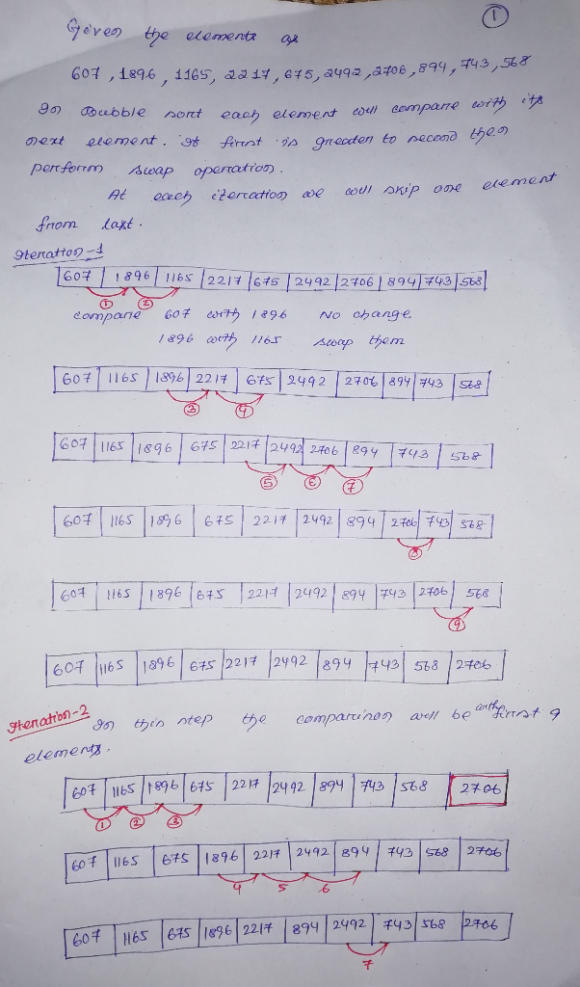 ①
Given the elements as
607, 1896, 1165, 2217, 675, 2492, 2706, 894, 743, 568
In Bubble sort each element will compare with its
next element. If first is greater to second then
perform swap operation.
At each iteration we will skip one element
from last.
Iteration-1
607 1896 1165 2217 675 2492 2706 894 743 568
① ②
compare 607 with 1896 No change
1896 with 1165 swap them
607 1165 1896 2217 675 2492 2706 894 743 568
③ ④
607 1165 1896 675 2217 2492 2706 894 743 568
⑤ ⑥ ⑦
607 1165 1896 675 2217 2492 894 2706 743 568
⑧
607 1165 1896 675 2217 2492 894 743 2706 568
⑨
607 1165 1896 675 2217 2492 894 743 568 2706
Iteration-2 In this step the comparison will be with first 9
elements.
607 1165 1896 675 2217 2492 894 743 568 2706
① ② ③
607 1165 675 1896 2217 2492 894 743 568 2706
4 5 6
607 1165 675 1896 2217 894 2492 743 568 2706
7